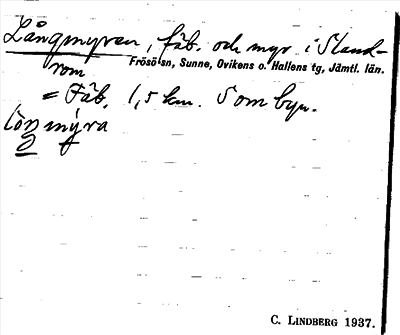 Långmyren, fäb. och myr i Stand-
rom Frösö sn, Sunne, Ovikens o. Hallens tg, Jämtl. län.
= Fäb. 1,5 km. S om byn.
lòŋmýra
C. LINDBERG 1937.